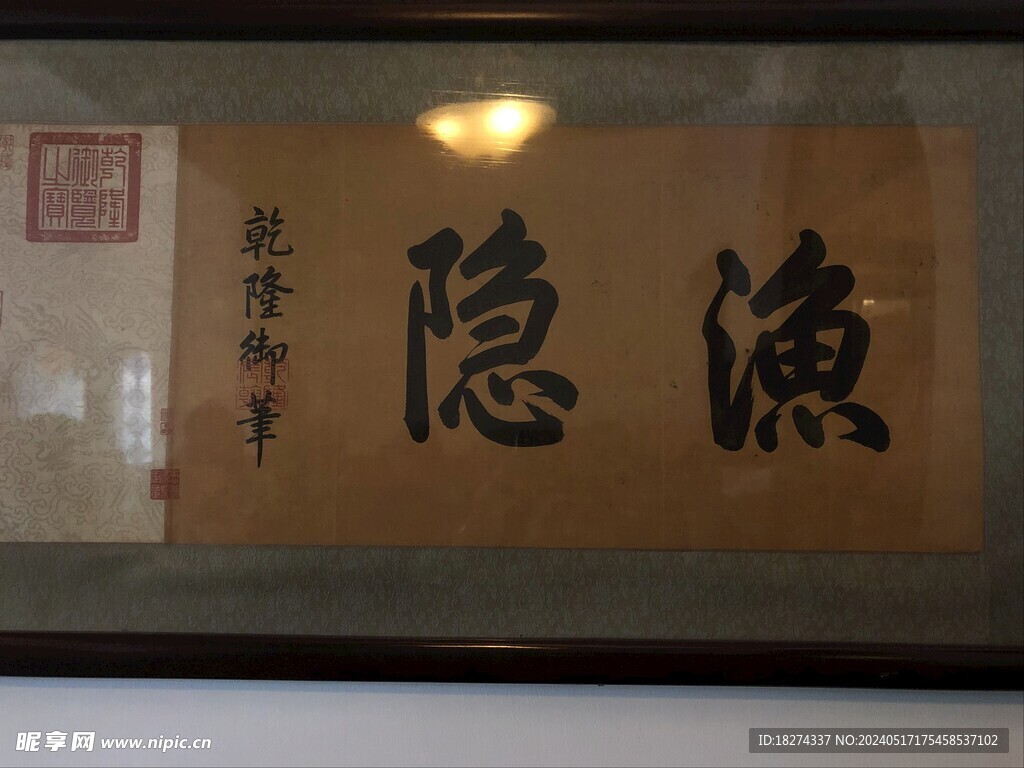 渔隐
乾隆御筆
乾隆御覽之寶
昵享网 www.nipic.cn
ID:18274337 NO:20240517175458537102